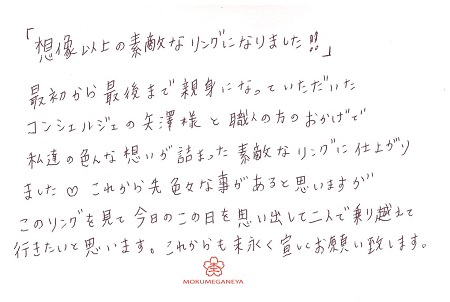 「想像以上の素敵なリングになりました!!」
最初から最後まで親身になっていただいた
コンシェルジェの矢澤様と職人の方のおかげで
私達の色んな想いが詰まった素敵なリングに仕上がり
ました♡これから先色々な事があると思いますが
このリングを見て今日のこの日を思い出して二人で乗り越えて
行きたいと思います。これからも末永く宜しくお願い致します。
MOKUMEGANEYA